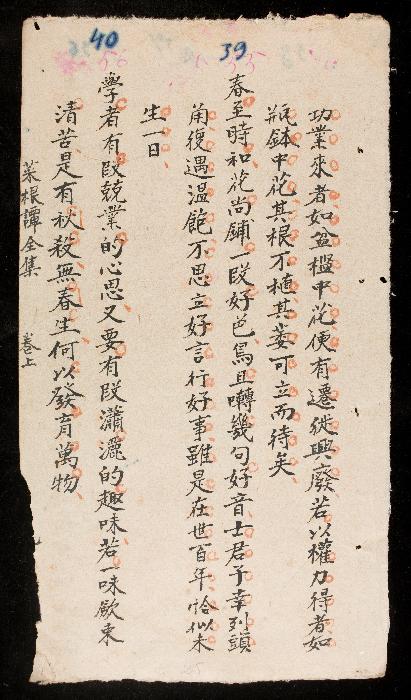 40
39
功業來者如盆檻中花便有遷徙興廢若以權力得者如
瓶鉢中花其根不植其萎可立而待矣
春至時和花尚鋪一段好色鳥且囀幾句好音士君子幸列頭
角復遇溫飽不思立好言行好事雖是在世百年恰似未
生一日
學者有段兢業的心思又要有段瀟灑的趣味若一味歛束
清苦是有秋殺無春生何以發育萬物
菜根譚全集 卷上